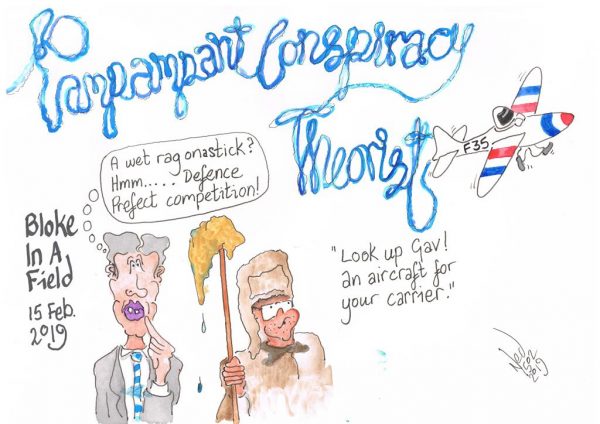 Rampampant Conspiracy
Theorist
F35
A wet rag onastick?
Hmm..... Defence
Prefect competition!
Bloke
In A
Field
15 Feb.
2019
"Look up Gav!
an aircraft for
your carrier."